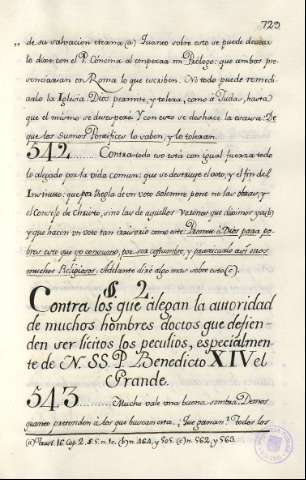 729
„ de su salvacion eterna (a) Quanto sobre esto se puede desear
lo dixe con el P. Cóncina al empezar mi Prólogo: que ambos pre
senciavan en Roma lo que escriben. No todo puede remedi
arlo la Iglesia. Dios permite, y tolera, como à Judas, hasta
que el mismo se Y con esto se deshace la De
que los Sumos Pontifices lo saben, y lo toleran.
542 Contra todo eso está con igual fuerza todo
lo alegado por la vida comun: que se destruye el voto, y el fin del
Instituto: que por Regla de un voto solemne pone no las obras, y
el Consejo de Christo, sino las de aquellos que diximos ya (b)
y que hacen un voto tan como este: Prometo à Dios para po
bres este que yo renuncio, por ser costumbre, y practicarlo assi otros
muchos Religiosos. Adelante diré algo mas sobre esto (c).
§. 2.
Contra los que alegan la autoridad
de muchos hombres doctos que defien-
den ser licitos los peculios, especialmen
te de N. SS. P. Benedicto XIV el
Grande.
543 Mucho vale una buena sombra. Demos
quanto pretenden à los que buscan esta. ¿Que ganan? Todos los
(a) Trat. 16 Cap. 2. §. 5. n. 10. (b) n. 464, y 505. (c) n. 562, y 563.